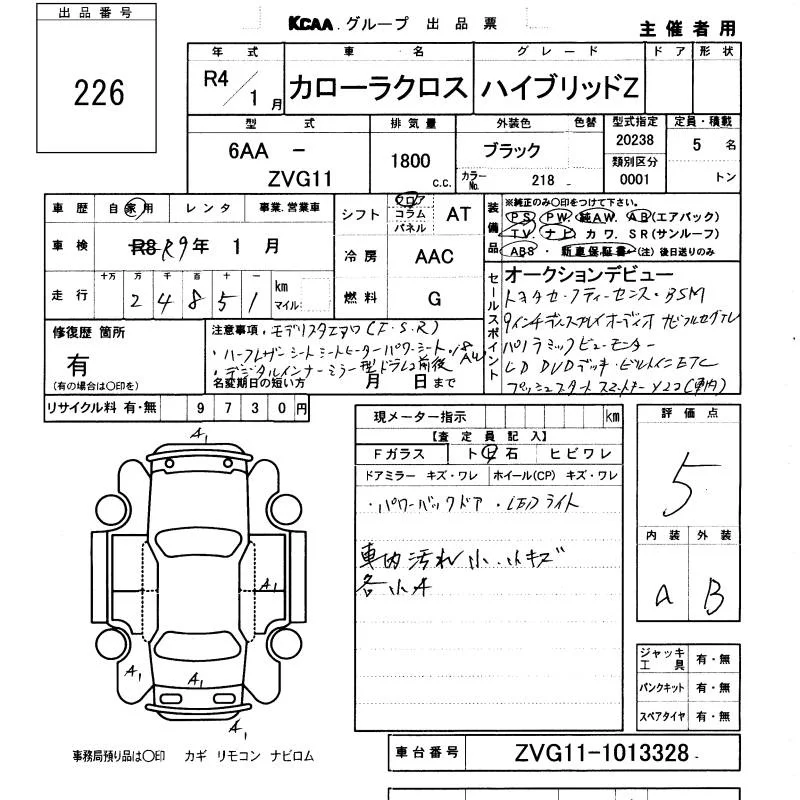 出品番号
226
KCAA.グループ 出品票
主催者用
年式 車名 グレード ドア 形状
R4/1月 カローラクロス ハイブリッドZ
型式 排気量 外装色 色替 型式指定 定員・積載
6AA - ZVG11
1800 c.c.
ブラック
カラーNo. 218
20238
類別区分
0001
5 名
トン
車歴 自家用 レンタ 事業.営業車
車検 R8 R9年 1月
走行 十万 万 千 百 十 一
24851 km マイル
シフト フロア コラム パネル AT
冷房 AAC
燃料 G
装備品 ※純正のみ〇印をつけて下さい。
PS PW 純AW. AB(エアバッグ)
TV. ナビ カワ. SR(サンルーフ)
ABS・新車保証書・(注)後日送りのみ
セールスポイント
オークションデビュー
トヨタセーフティーセンス・BSM
9インチディスプレイオーディオ ナビフルセグTV
パノラミックビューモニター
CD DVDデッキ・ビルトインETC
プッシュスタート スマートキー×2コ(車内)
修復歴 箇所
有
(有の場合は〇印を)
注意事項・モデリスタエアロ(F.S.R)
・ハーフレザーシート シートヒーター パワーシート・18AW
・デジタルインナーミラー型ドラレコ前後
名変期日の短い方 月 日まで
リサイクル料 有・無 9730円
現メーター指示 km
【査定員記入】
Fガラス ト ビ 石 ヒビワレ
ドアミラー キズ・ワレ ホイール(CP) キズ・ワレ
・パワーバックドア ・LEDライト
車内汚れ小.小キズ
各小A
評価点
5
内装 外装
A B
A1
A1
A1
A1
A1
ジャッキ工具 有・無
パンクキット 有・無
スペアタイヤ 有・無
事務局預り品は〇印 カギ リモコン ナビロム
車台番号 ZVG11-1013328